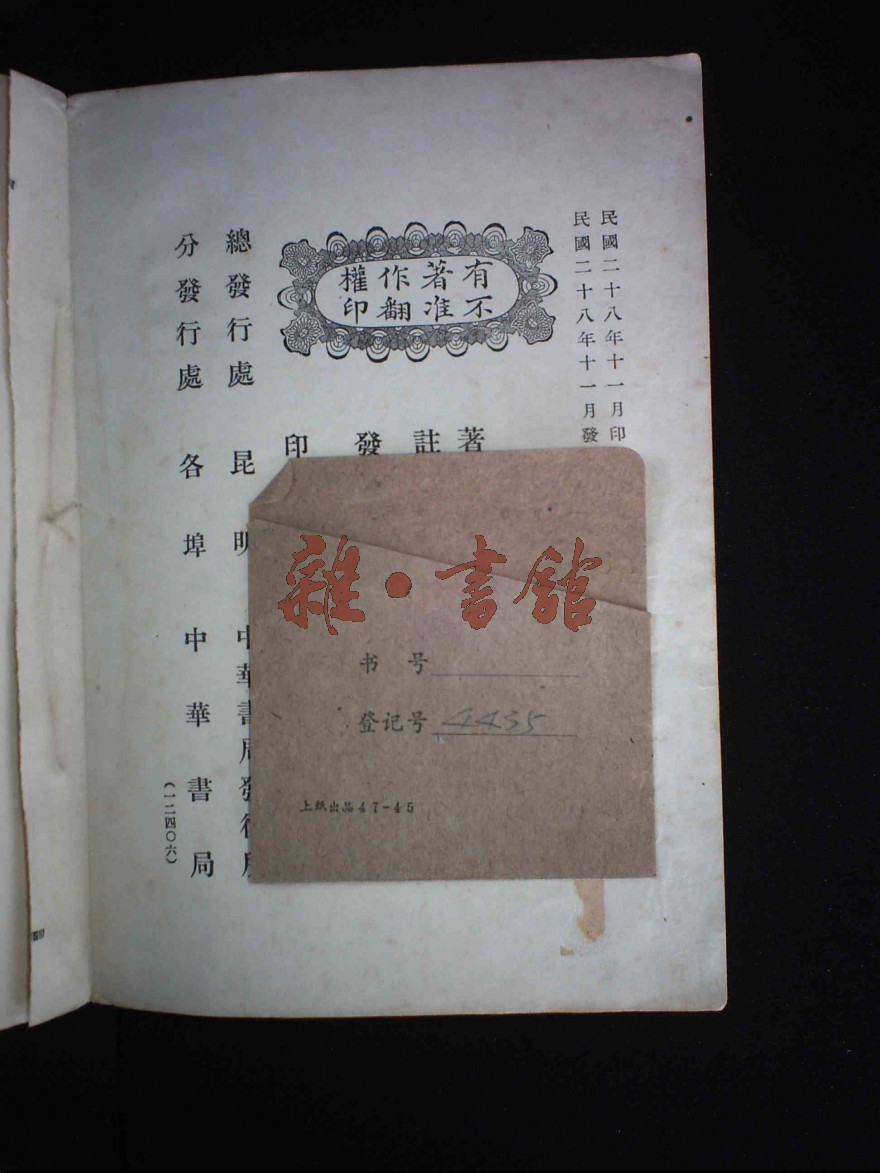 民國二十八年十一月印
民國二十八年十一月發
有著作權
不准翻印
著
註
發
印
總發行處 昆明 中華書局發行所
分發行處 各埠中華書局
(一二四〇六)
雜·書館
书号
登记号 4435
上纸出品47-45